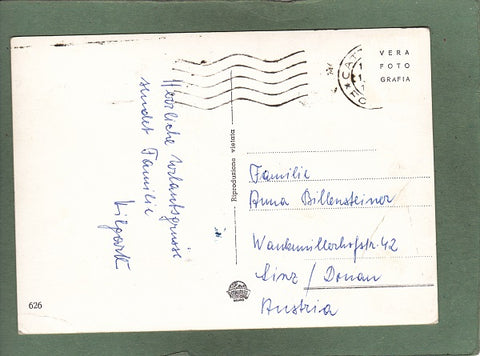 VERA
FOTO
GRAFIA
CAT
FO
Herzliche Urlaubsgrüsse
sendet Familie
Riproduzione vietata
Familie
Anna Billensteiner
Linz / Donau
Austria
626